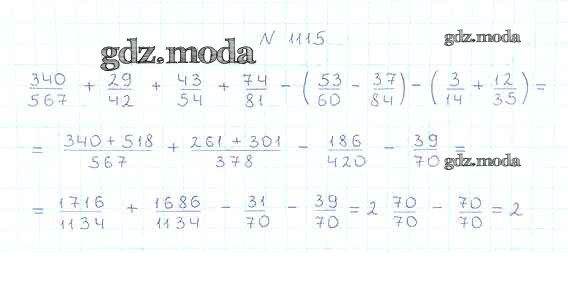 N 1115
gdz.moda
gdz.moda
340/567 + 29/42 + 43/54 + 74/81 - (53/60 - 37/84) - (3/14 + 12/35) =
= 340+518/567 + 261+301/378 - 186/420 - 39/70 =
gdz.moda
= 1716/1134 + 1686/1134 - 31/70 - 39/70 = 2 70/70 - 70/70 = 2